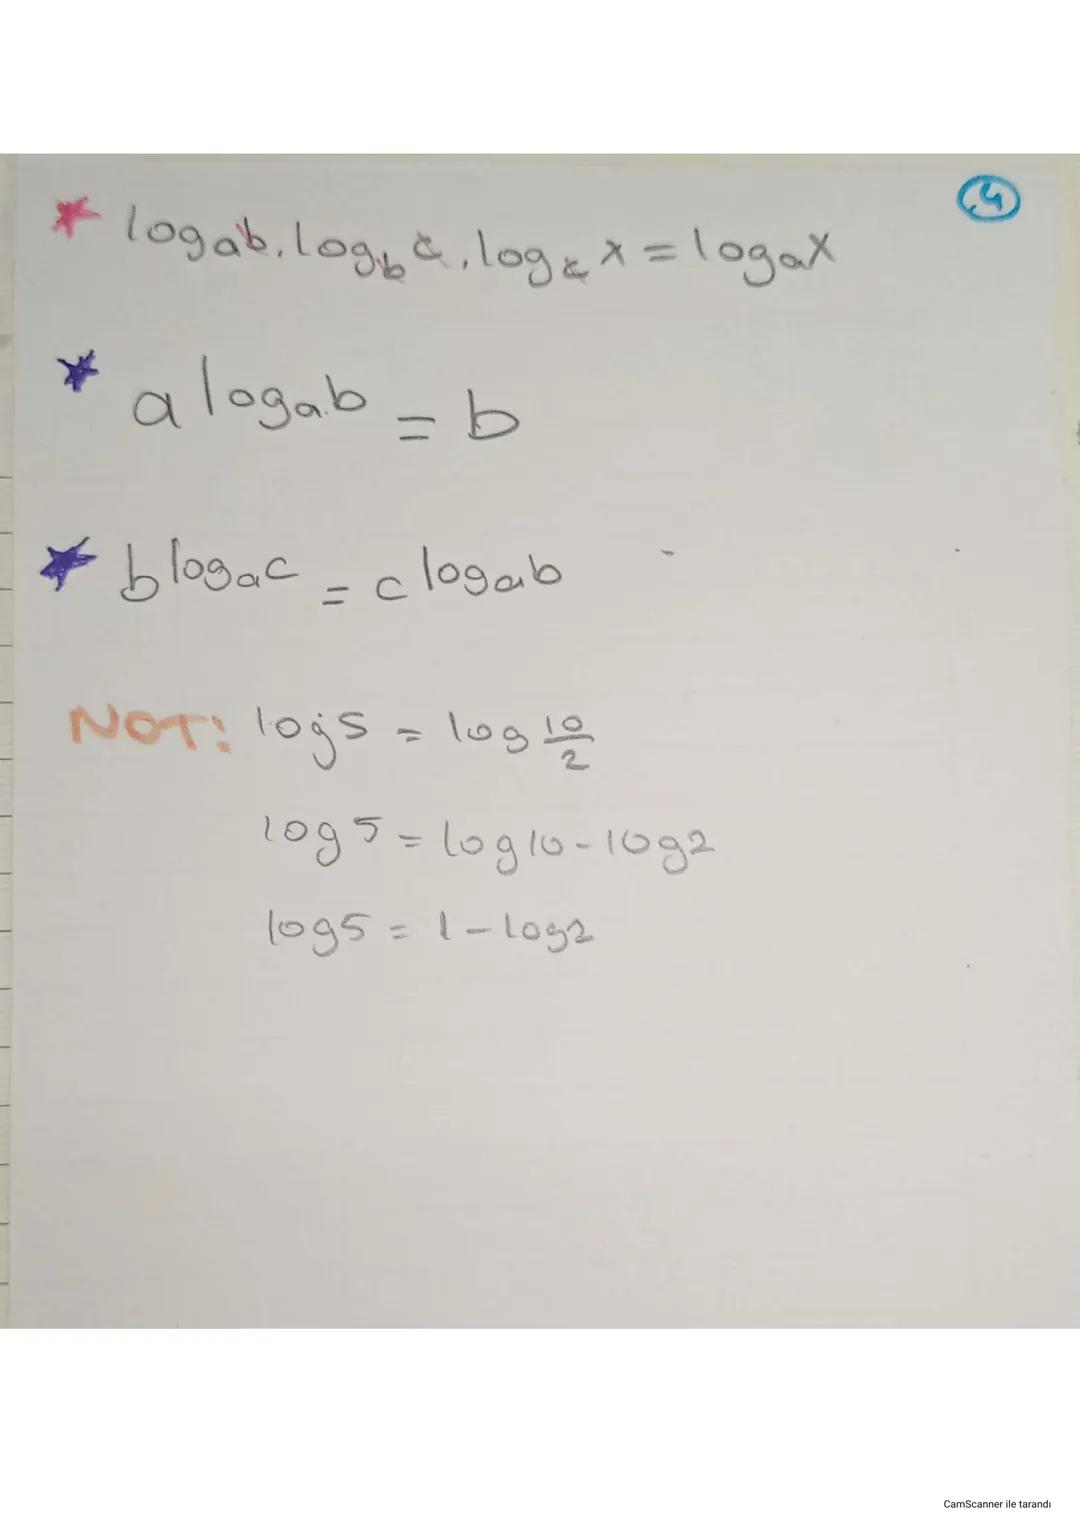 4
* logₐb . log_b c . log_c x = logₐx
* a^logₐb = b
* b^logₐc = c^logₐb
NOT: log5 = log 10/2
log5 = log10 - log2
log5 = 1 - log2
CamScanner ile tarandı